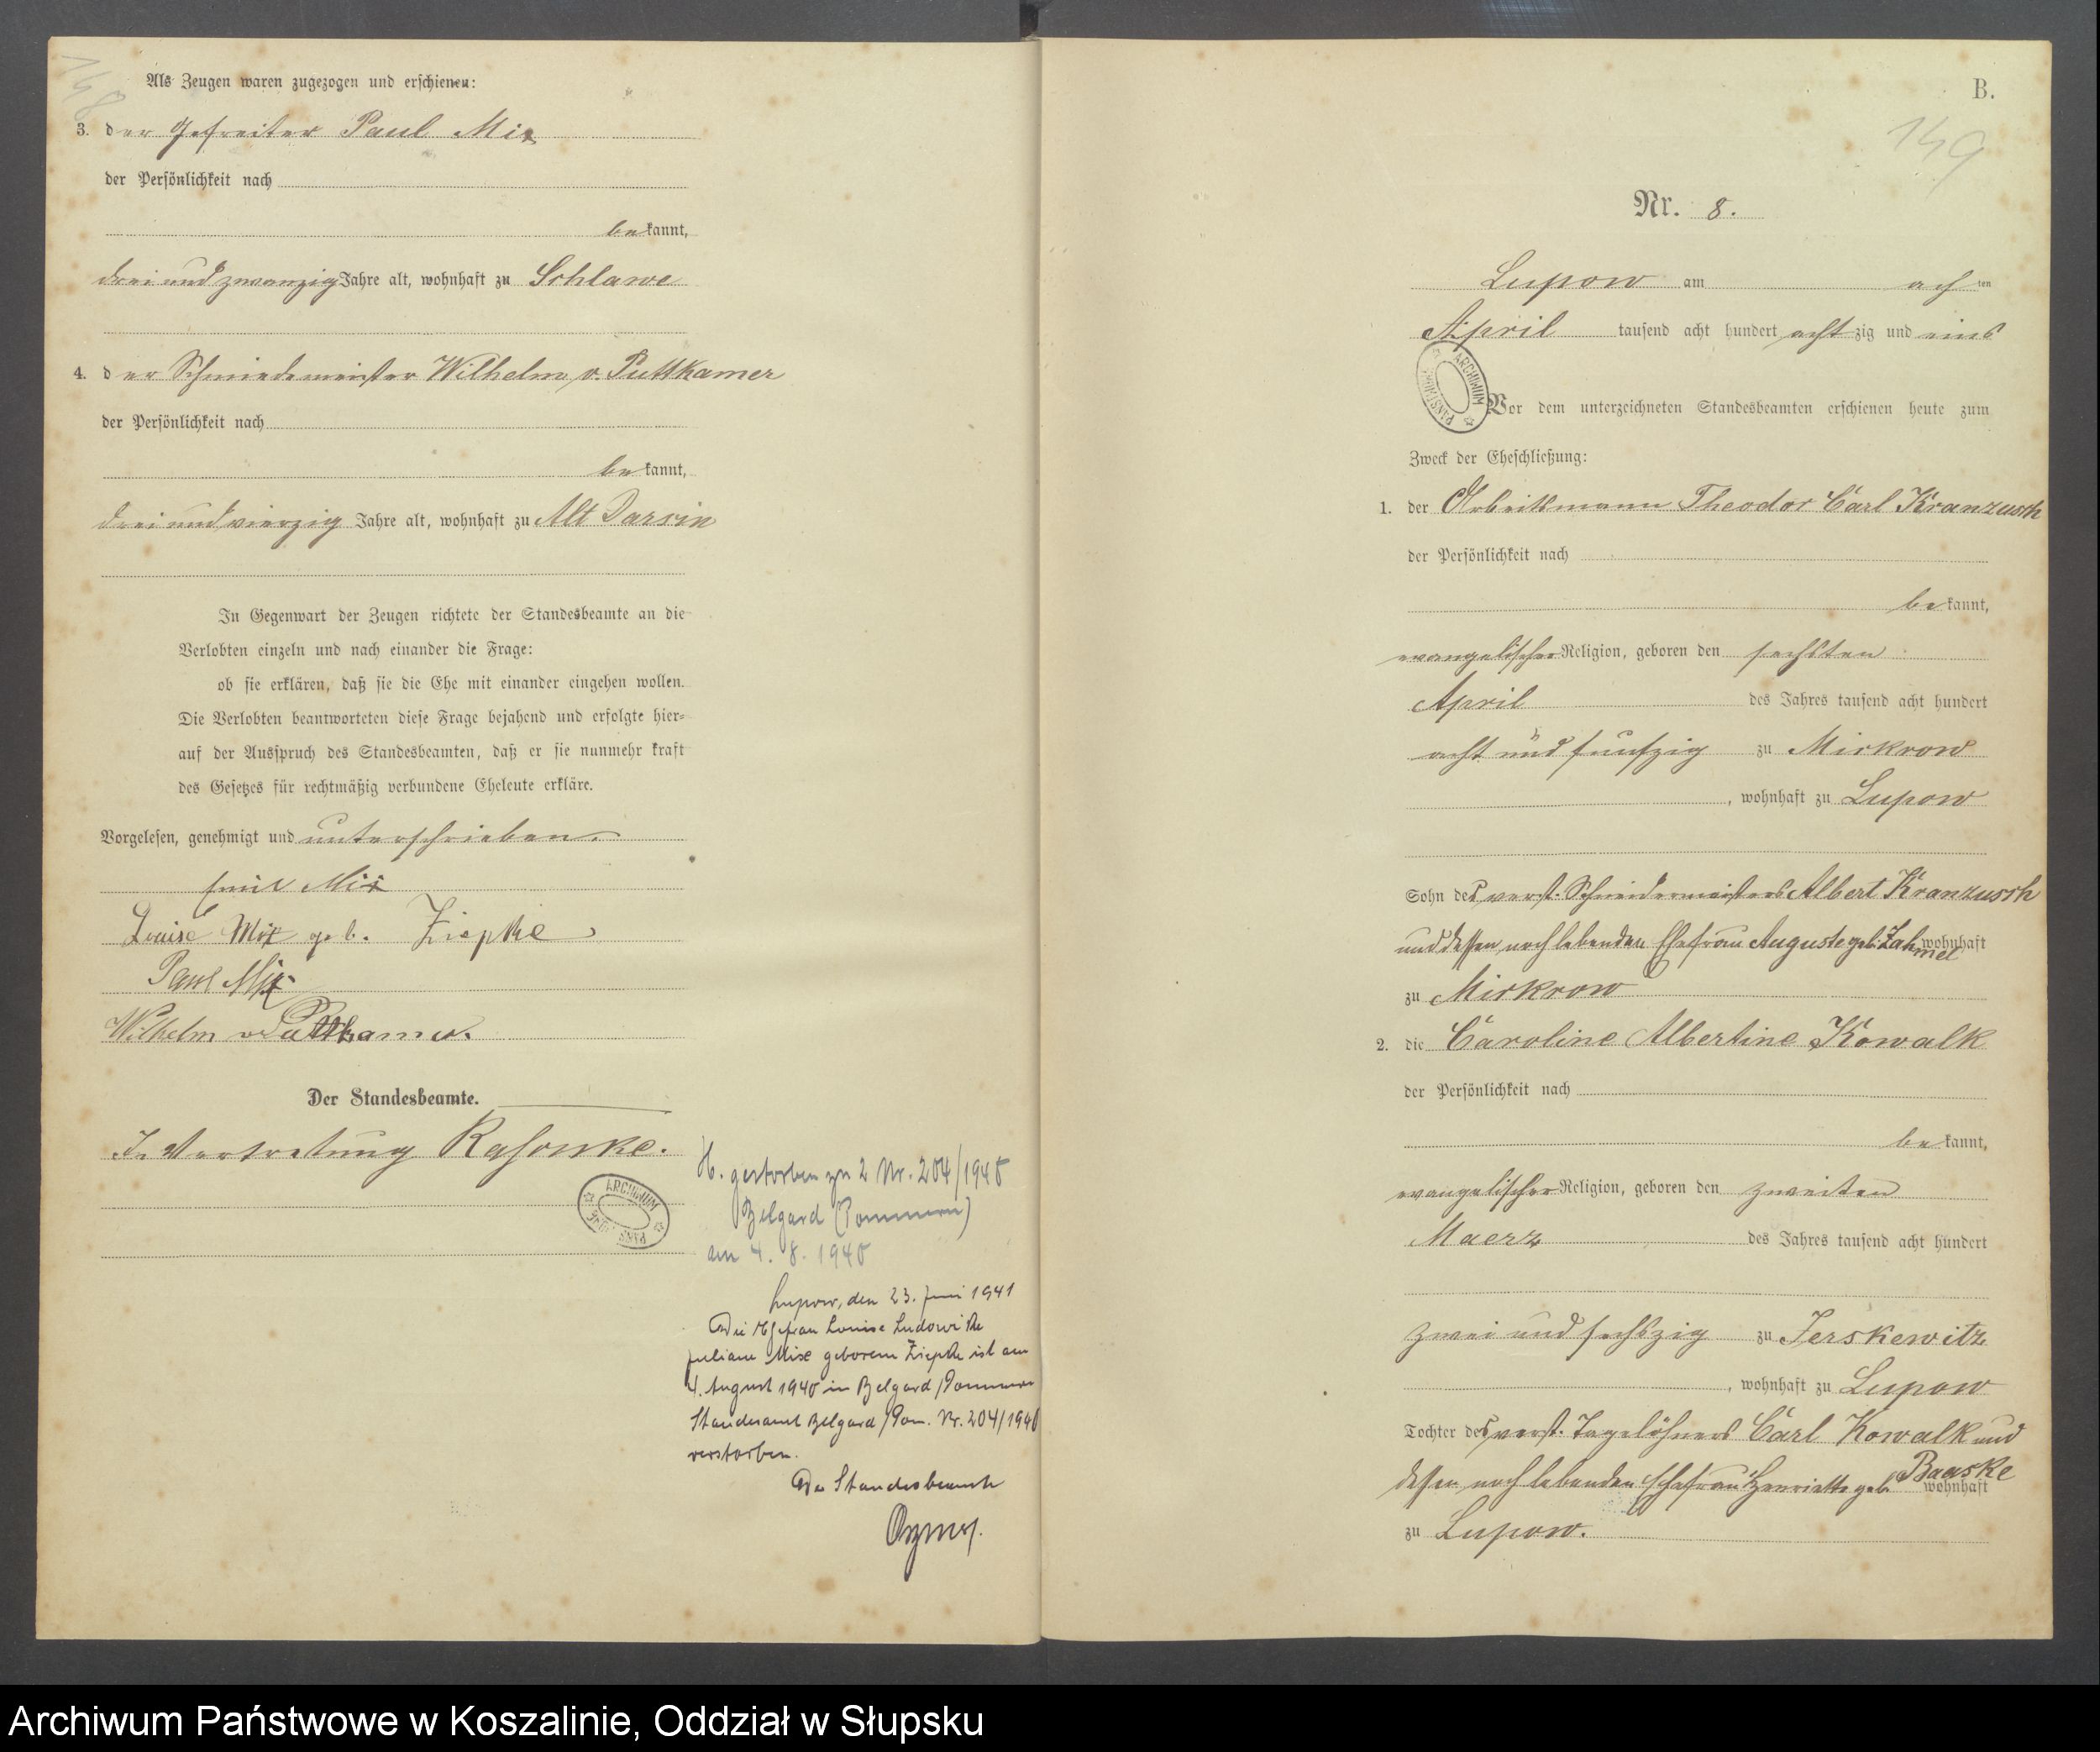 148
Als Zeugen waren zugezogen und erschienen:
3. der Gefreiter Paul Mix
der Persönlichkeit nach
bekannt,
drei und zwanzig Jahre alt, wohnhaft zu Schlawe
4. der Schmiedemeister Wilhelm v. Puttkamer
der Persönlichkeit nach
bekannt,
drei und vierzig Jahre alt, wohnhaft zu Alt Darsin
In Gegenwart der Zeugen richtete der Standesbeamte an die
Verlobten einzeln und nach einander die Frage:
ob sie erklären, daß sie die Ehe mit einander eingehen wollen.
Die Verlobten beantworteten diese Frage bejahend und erfolgte hier-
auf der Ausspruch des Standesbeamten, daß er sie nunmehr kraft
des Gesetzes für rechtmäßig verbundene Eheleute erkläre.
Vorgelesen, genehmigt und unterschrieben.
Emil Mix
Louise Mix geb. Ziepke
Paul Mix
Wilhelm v Puttkamer.
Der Standesbeamte.
In Vertretung
ARCHIWUM
gestorben zu 2 Nr. 204/1940
Belgard (Pommern)
am 4. 8. 1940
Lupow, den 23. Juni 1941
Die Ehefrau Louise Ludowike
Juliane Mix geborene Ziepke ist am
4. August 1940 in Belgard/Pommern
Standesamt Belgard/Pom. Nr. 204/1940
verstorben.
Der Standesbeamte
B.
149
Nr. 8.
Lupow am achten
April tausend acht hundert achtzig und eins
ARCHIWUM PAŃSTWOWE
Vor dem unterzeichneten Standesbeamten erschienen heute zum
Zweck der Eheschließung:
1. der Arbeitsmann Theodor Carl Kranzusch
der Persönlichkeit nach
bekannt,
evangelischer Religion, geboren den sechsten
April des Jahres tausend acht hundert
acht und funfzig zu Mickrow
, wohnhaft zu Lupow
Sohn des verst. Schneidermeisters Albert Kranzusch
und dessen noch lebenden Ehefrau Auguste geb. Zahmel wohnhaft
zu Mickrow
2. die Caroline Albertine Kowalk
der Persönlichkeit nach
bekannt,
evangelischer Religion, geboren den zweiten
Maerz des Jahres tausend acht hundert
zwei und sechszig zu Jerskewitz
, wohnhaft zu Lupow
Tochter des verst. Tagelöhners Carl Kowalk und
dessen noch lebenden Ehefrau Henriette geb. Baaske wohnhaft
zu Lupow.
Archiwum Państwowe w Koszalinie, Oddział w Słupsku